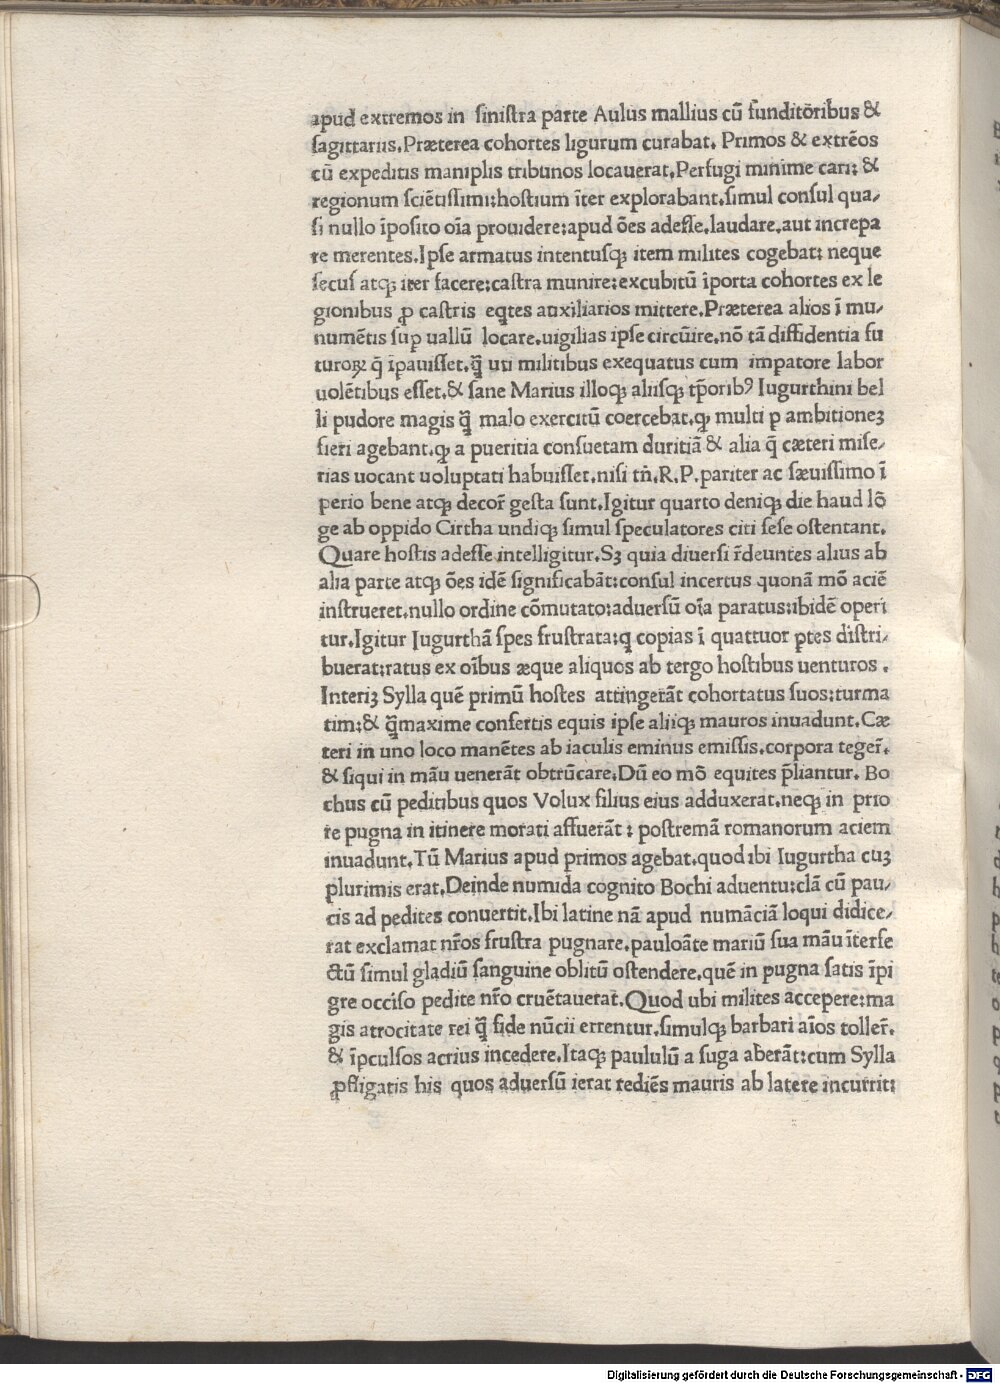 apud extremos in ſiniſtra parte Aulus mallius cū funditōribus &
ſagittariis.Præterea cohortes ligurum curabat. Primos & extrēos
cū expeditis maniplis tribunos locauerat.Perfugi minime cari: &
regionum ſciētiſſimi:hoſtium īter explorabant.ſimul conſul qua⸗
ſi nullo īpoſito oīa prouidere:apud ōes adeſſe.laudare.aut increpa
re merentes.Ipſe armatus intentuſqꝫ item milites cogebat: neque
ſecuſ atqꝫ iter facere:caſtra munire:excubitū īporta cohortes ex le
gionibus ꝓ caſtris eqtes auxiliarios mittere.Præterea alios ī mu⸗
numētis ſuꝑ uallū locare.uigilias ipſe circūire.nō tā diffidentia fu
turoꝝ q̄ īpauiſſet.q̄ꝫ uti militibus exequatus cum impatore labor
uolētibus eſſet.& ſane Marius illoqꝫ aliiſqꝫ tp̄oribꝰ Iugurthini bel
li pudore magis q̄ꝫ malo exercitū coercebat.qꝫ multi p ambitioneꝫ
fieri agebant.qꝫ a pueritia conſuetam duritiā & alia q̄ cæteri miſe⸗
rias uocant uoluptati habuiſſet.niſi tn̄.R.P.pariter ac ſæuiſſimo ī
perio bene atqꝫ decor̄ geſta ſunt.Igitur quarto deniqꝫ die haud lō
ge ab oppido Cirtha undiqꝫ ſimul ſpeculatores citi ſeſe oſtentant.
Quare hoſtis adeſſe intelligitur.Sꝫ quia diuerſi r̄deuntes alius ab
alia parte atqꝫ ōes idē ſignificabāt:conſul incertus quonā mō aciē
inſtrueret.nullo ordine cōmutato:aduerſū oīa paratus:ibidē operi
tur.Igitur Iugurthā ſpes fruſtrata:q copias ī quattuor ꝑtes diſtri⸗
buerat:ratus ex oībus æque aliquos ab tergo hoſtibus uenturos .
Interiꝫ Sylla quē primū hoſtes attingerāt cohortatus ſuos:turma
tim:& q̄ꝫmaxime confertis equis ipſe aliiqꝫ mauros inuadunt.Cæ
teri in uno loco manētes ab iaculis eminus emiſſis.corpora teger̄.
& ſiqui in māu uenerāt obtrūcare.Dū eo mō equites p̄liantur. Bo
chus cū peditibus quos Volux filius eius adduxerat.neqꝫ in prio
re pugna in itinere morati affuerāt : poſtremā romanorum aciem
inuadunt.Tū Marius apud primos agebat.quod ibi Iugurtha cuꝫ
plurimis erat.Deinde numida cognito Bochi aduentu:clā cū pau⸗
cis ad pedites conuertit.Ibi latine nā apud numāciā loqui didice⸗
rat exclamat nr̄os fruſtra pugnare.pauloāte mariū ſua māu īterfe
ctū ſimul gladiū ſanguine oblitū oſtendere.quē in pugna ſatis īpi
gre occiſo pedite nr̄o cruētauerat.Quod ubi milites accepere:ma
gis atrocitate rei q̄ꝫ fide nūcii errentur.ſimulqꝫ barbari aīos toller̄.
& īpculſos acrius incedere.Itaqꝫ paululū a fuga aberāt:cum Sylla
ꝓfligatis his quos aduerſū ierat rediēs mauris ab latere incurrit:
Digitalisierung gefördert durch die Deutsche Forschungsgemeinschaft - DFG